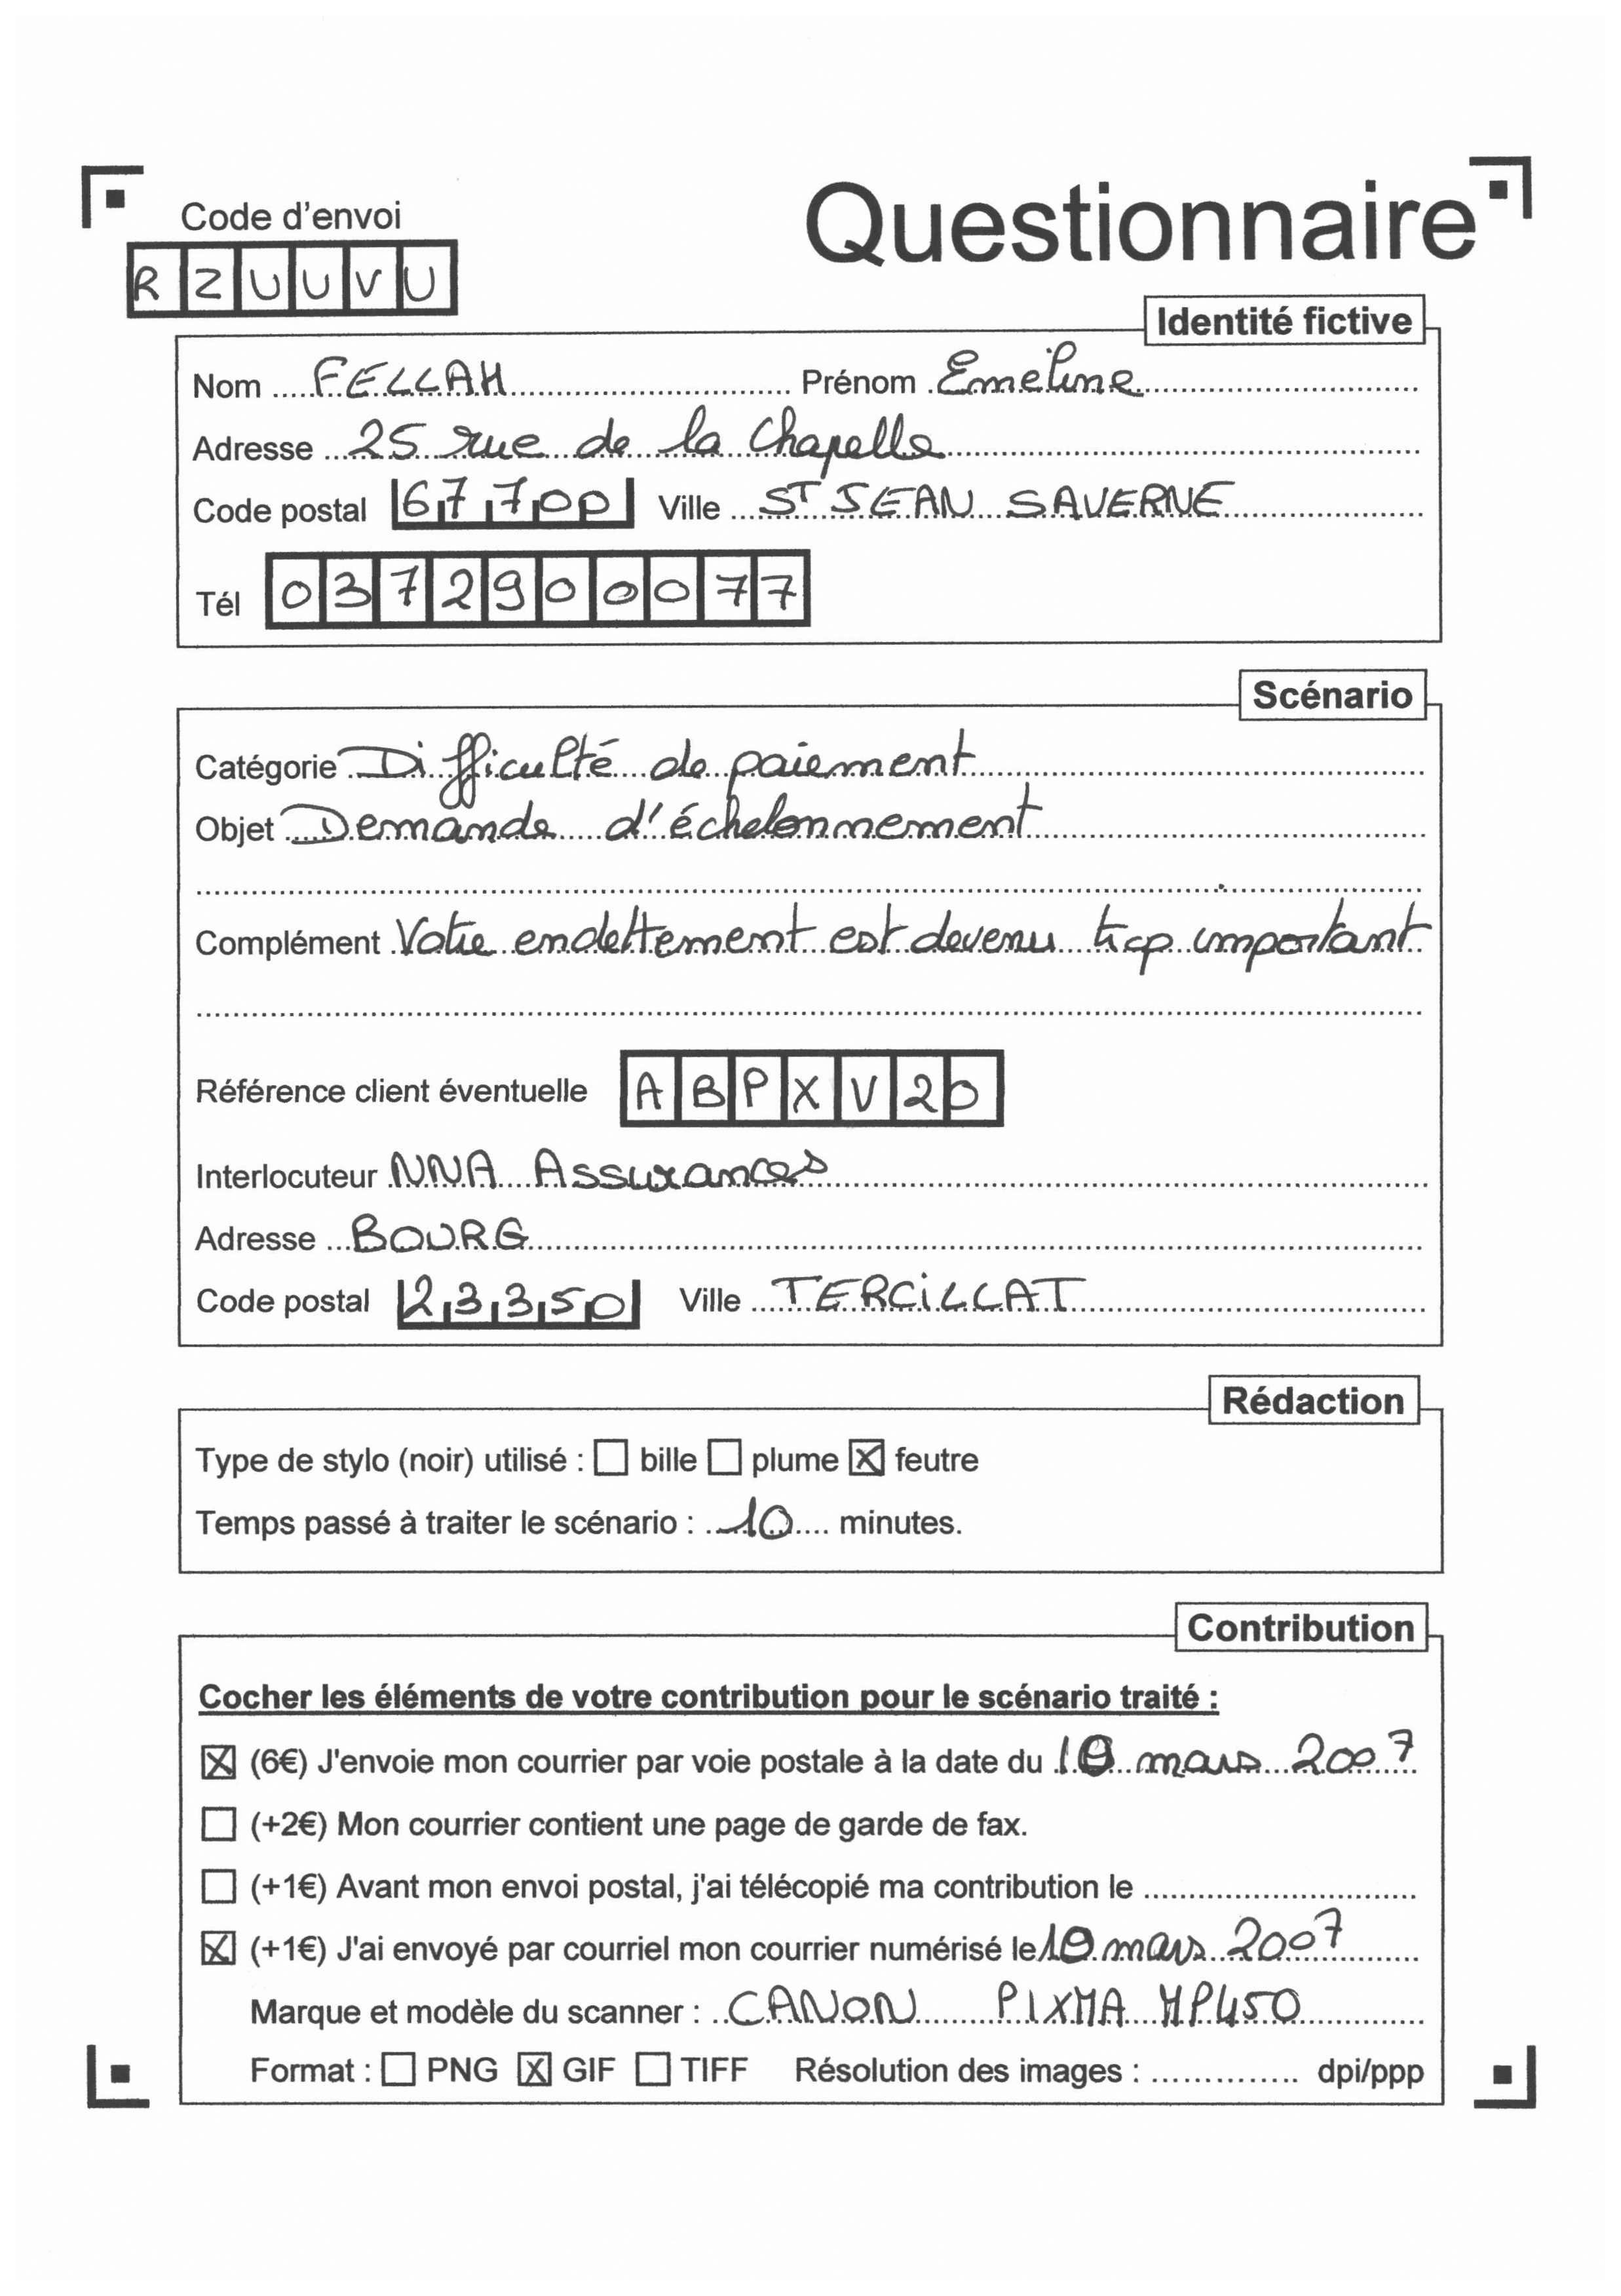 Code d'envoi
Questionnaire
RZUUVU
Identité fictive
Nom FELLAH Prénom Emeline
Adresse 25 rue de la Chapelle
Code postal 67700 Ville ST JEAN SAVERNE
Tél 0372900077
Scénario
Catégorie Difficulté de paiement
Objet Demande d'échelonnement
Complément Votre endettement est devenu trop important
Référence client éventuelle ABPXV20
Interlocuteur NNA Assurances
Adresse BOURG
Code postal 23350 Ville TERCILLAT
Rédaction
Type de stylo (noir) utilisé : ☐ bille ☐ plume ☒ feutre
Temps passé à traiter le scénario : 10 minutes.
Contribution
Cocher les éléments de votre contribution pour le scénario traité :
☒ (6€) J'envoie mon courrier par voie postale à la date du 10 mars 2007
☐ (+2€) Mon courrier contient une page de garde de fax.
☐ (+1€) Avant mon envoi postal, j'ai télécopié ma contribution le
☒ (+1€) J'ai envoyé par courriel mon courrier numérisé le 10 mars 2007
Marque et modèle du scanner : CANON PIXMA MP450
Format : ☐ PNG ☒ GIF ☐ TIFF Résolution des images : dpi/ppp